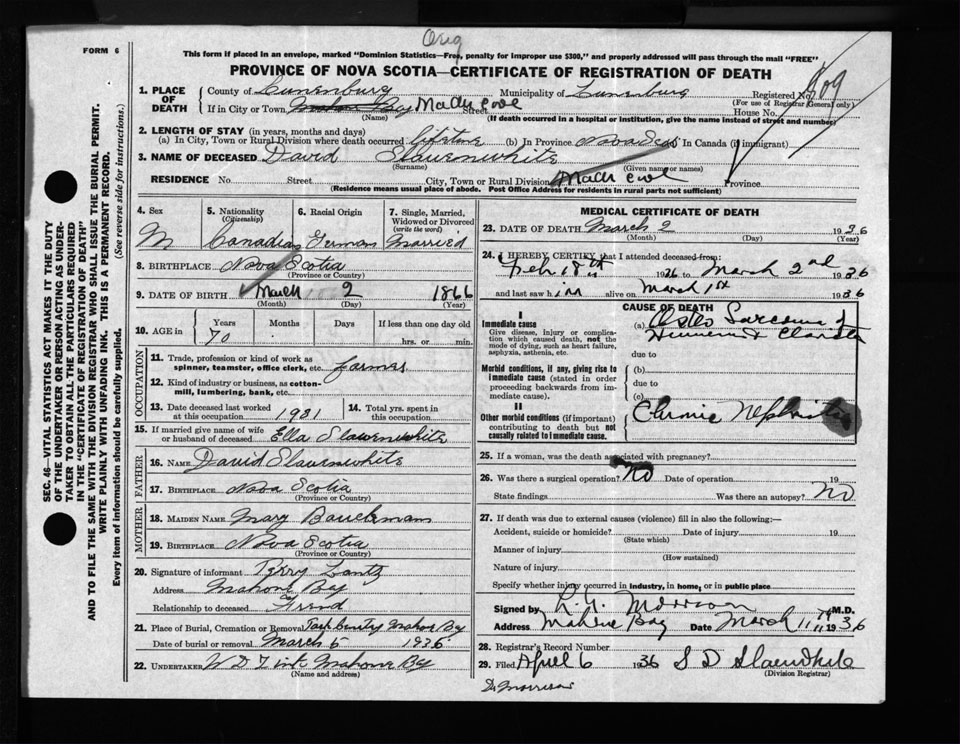 Orig
FORM 6
This form if placed in an envelope, marked "Dominion Statistics—Free, penalty for improper use $300," and properly addressed will pass through the mail "FREE"
PROVINCE OF NOVA SCOTIA—CERTIFICATE OF REGISTRATION OF DEATH
1. PLACE OF DEATH County of Lunenburg Municipality of Lunenburg Registered No. 609
(For use of Registrar General only)
If in City or Town Mahone Bay Mader Cove Street House No.
(Name) (If death occurred in a hospital or institution, give the name instead of street and number)
2. LENGTH OF STAY (in years, months and days)
(a) In City, Town or Rural Division where death occurred lifetime (b) In Province Nova Scotia In Canada (if immigrant)
3. NAME OF DECEASED David Slauenwhite
(Surname) (Given name or names)
RESIDENCE No. Street City, Town or Rural Division Mader Cove Province
(Residence means usual place of abode. Post Office Address for residents in rural parts not sufficient)
4. Sex 5. Nationality (Citizenship) 6. Racial Origin 7. Single, Married, Widowed or Divorced (write the word)
M Canadian German Married
8. BIRTHPLACE Nova Scotia
(Province or Country)
9. DATE OF BIRTH March 2 1866
(Month) (Day) (Year)
10. AGE in Years Months Days If less than one day old
70 hrs. or min.
OCCUPATION
11. Trade, profession or kind of work as spinner, teamster, office clerk, etc. farmer
12. Kind of industry or business, as cotton-mill, lumbering, bank, etc.
13. Date deceased last worked at this occupation 1931 14. Total yrs. spent in this occupation
15. If married give name of wife or husband of deceased Ella Slawenwhite
FATHER
16. NAME David Slauenwhite
17. BIRTHPLACE Nova Scotia
(Province or Country)
MOTHER
18. MAIDEN NAME Mary
19. BIRTHPLACE Nova Scotia
(Province or Country)
20. Signature of informant Perry Lantz
Address Mahone Bay
Relationship to deceased Friend
21. Place of Burial, Cremation or Removal Mahone Bay
Date of burial or removal March 5 1936
22. UNDERTAKER Mahone Bay
(Name and address)
MEDICAL CERTIFICATE OF DEATH
23. DATE OF DEATH March 2 1936
(Month) (Day) (Year)
24. I HEREBY CERTIFY that I attended deceased from:
Feb 18th 1936 to March 2nd 1936
and last saw him alive on March 1st 1936
CAUSE OF DEATH
I
Immediate cause
Give disease, injury or complication which caused death, not the mode of dying, such as heart failure, asphyxia, asthenia, etc.
(a) Osteo Sarcoma of
Humerus &
due to
Morbid conditions, if any, giving rise to immediate cause (stated in order proceeding backwards from immediate cause).
(b)
due to
(c)
II
Other morbid conditions (if important) contributing to death but not causally related to immediate cause.
Chronic Nephritis
25. If a woman, was the death associated with pregnancy?
26. Was there a surgical operation? No Date of operation 19
State findings Was there an autopsy? No
27. If death was due to external causes (violence) fill in also the following:—
Accident, suicide or homicide? Date of injury 19
(State which)
Manner of injury
(How sustained)
Nature of injury
Specify whether injury occurred in industry, in home, or in public place
Signed by Morrison M.D.
Address Mahone Bay Date March 11th 1936
28. Registrar's Record Number
29. Filed April 6 1936 S D Slauenwhite
(Division Registrar)
Dr Morrison
SEC. 46—VITAL STATISTICS ACT MAKES IT THE DUTY
OF THE UNDERTAKER OR PERSON ACTING AS UNDER-
TAKER TO OBTAIN ALL THE PARTICULARS REQUIRED
IN THE "CERTIFICATE OF REGISTRATION OF DEATH"
AND TO FILE THE SAME WITH THE DIVISION REGISTRAR WHO SHALL ISSUE THE BURIAL PERMIT.
WRITE PLAINLY WITH UNFADING INK. THIS IS A PERMANENT RECORD.
Every item of information should be carefully supplied. (See reverse side for instructions.)